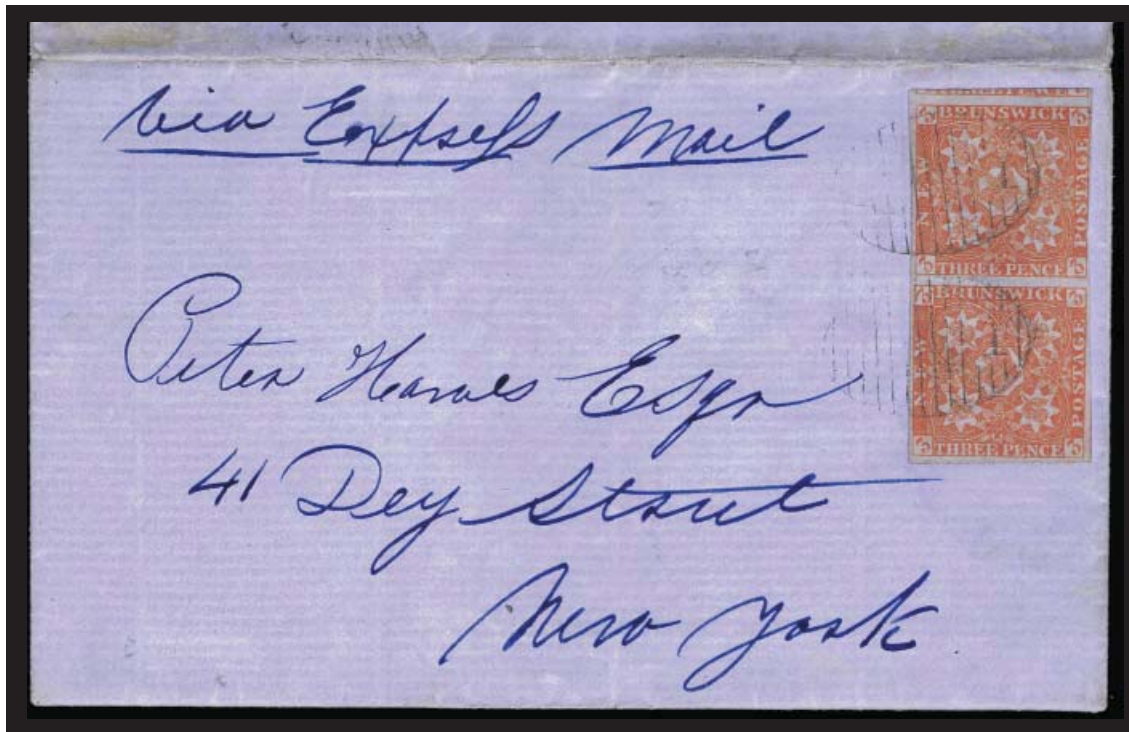 via Express Mail
BRUNSWICK
NEW
POSTAGE
THREE PENCE
BRUNSWICK
NEW
POSTAGE
THREE PENCE
1
1
Peter Esqr
41 Dey Street
New York